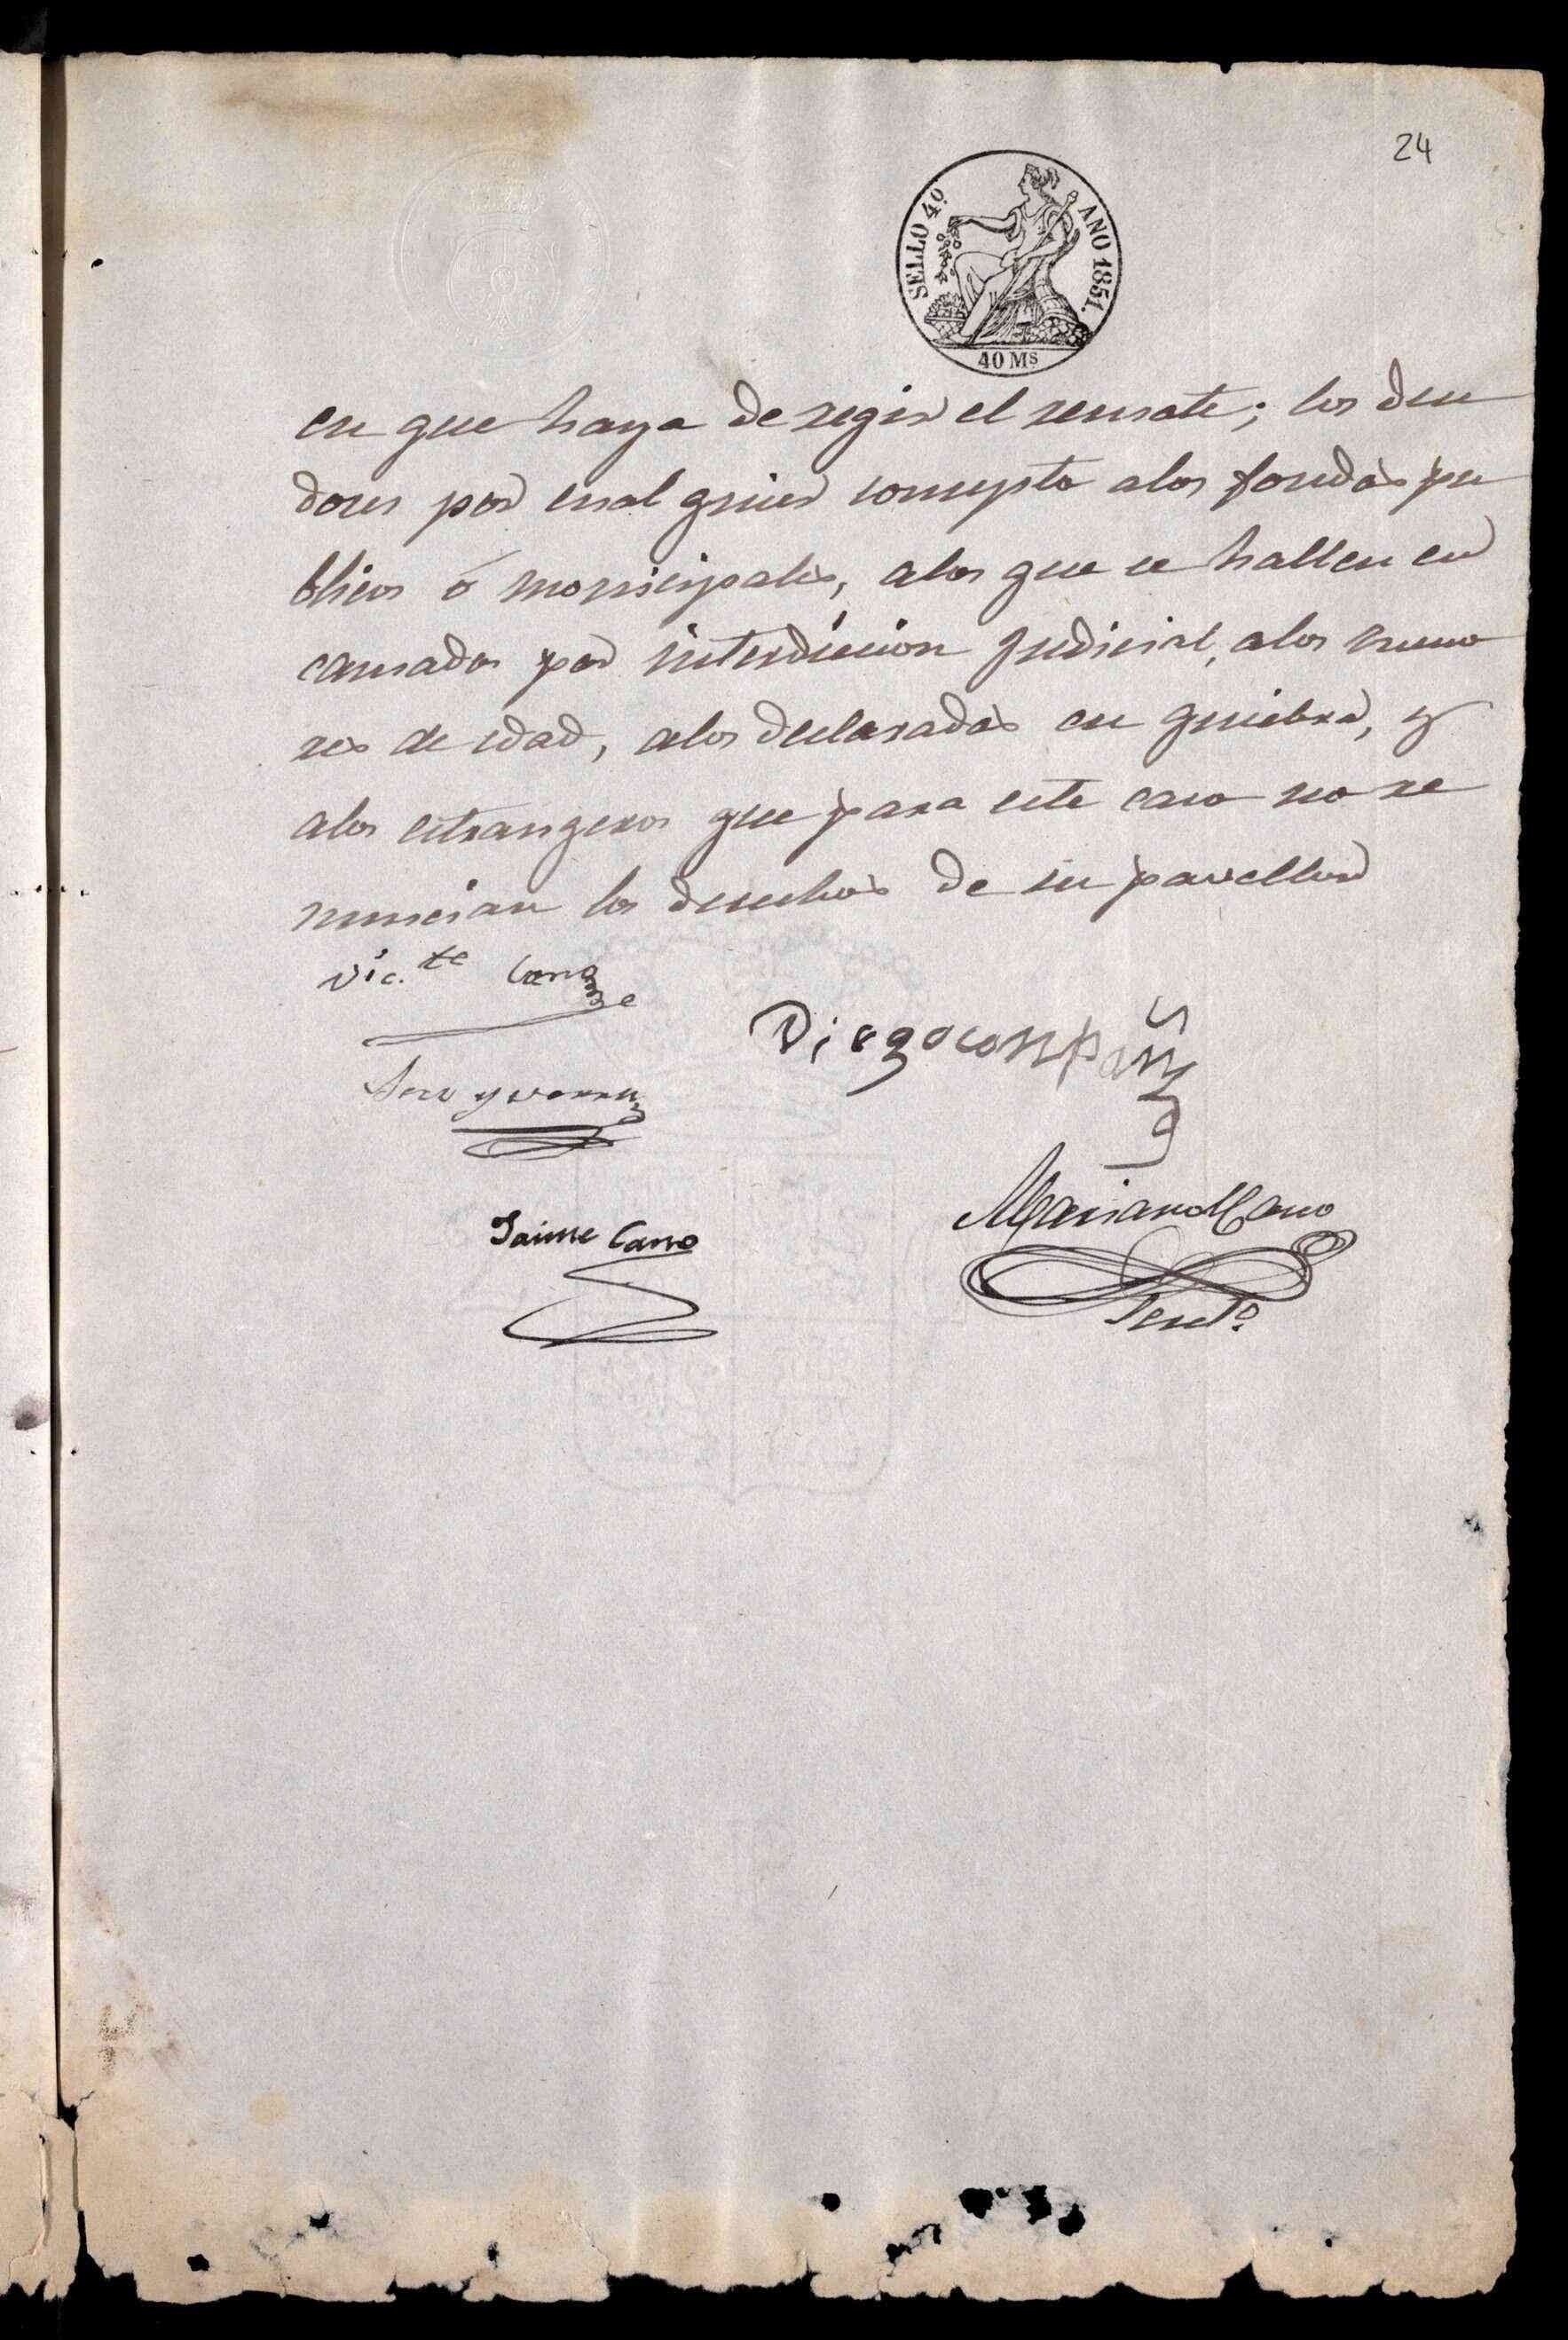 24
SELLO 4º. AÑO 1851.
40 Ms
en que haya de regir el remate; los deu
dores por cual quier concepto alos fondos pu
blicos ó monicipales, alos que se hallen en
causados por interdiccion Judicial, alos meno
res de edad, alos declarados en quiebra, y
alos estrangeros que para este caso no re
nuncian los derechos de su pavellon
Vic.te
Diego compañ
Jaime Cano
Mariano Cano
Secretº.